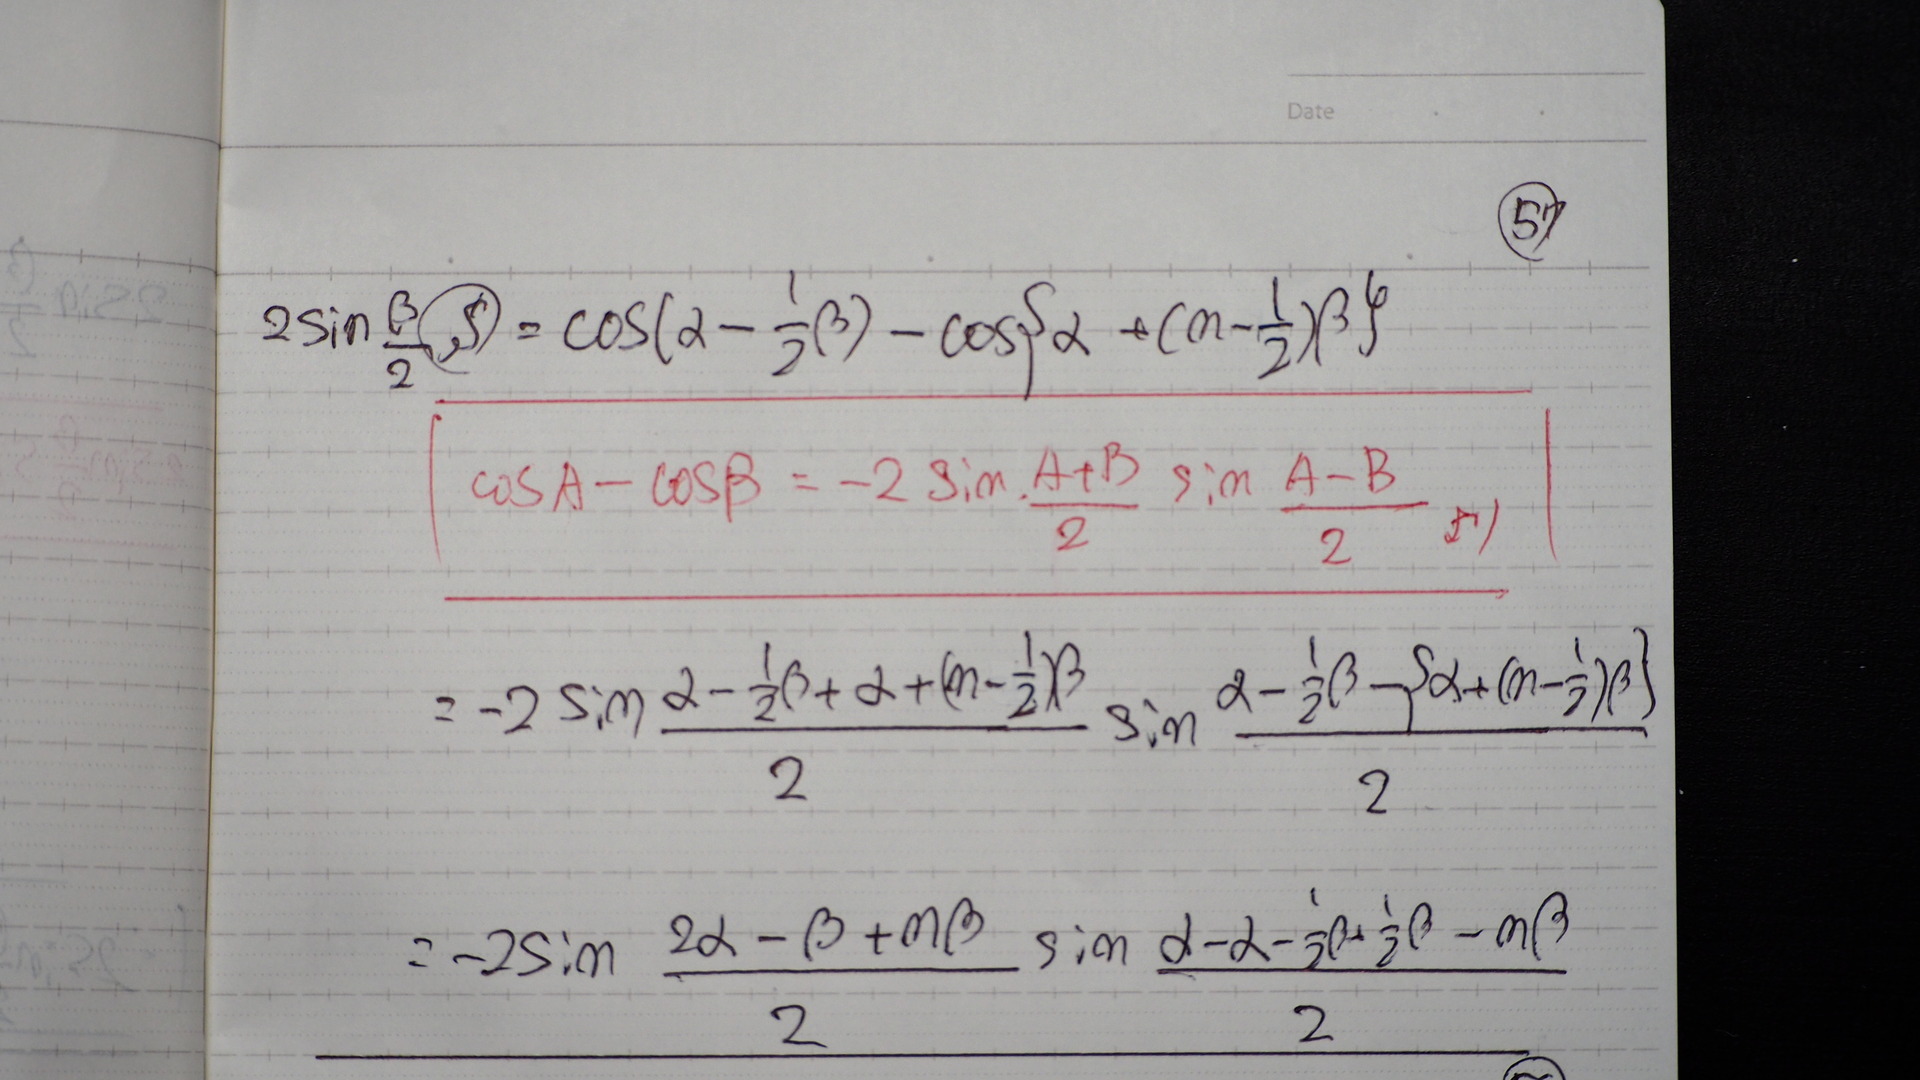 Date
57
2 sin β/2 (S) = cos(α - 1/2 β) - cos{α + (n - 1/2)β}
cos A - cos B = -2 sin A+B/2 sin A-B/2
= -2 sin α - 1/2 β + α + (n - 1/2)β/2 sin α - 1/2 β - {α + (n - 1/2)β}/2
= -2 sin 2α - β + nβ/2 sin α - α - 1/2 β + 1/2 β - nβ/2